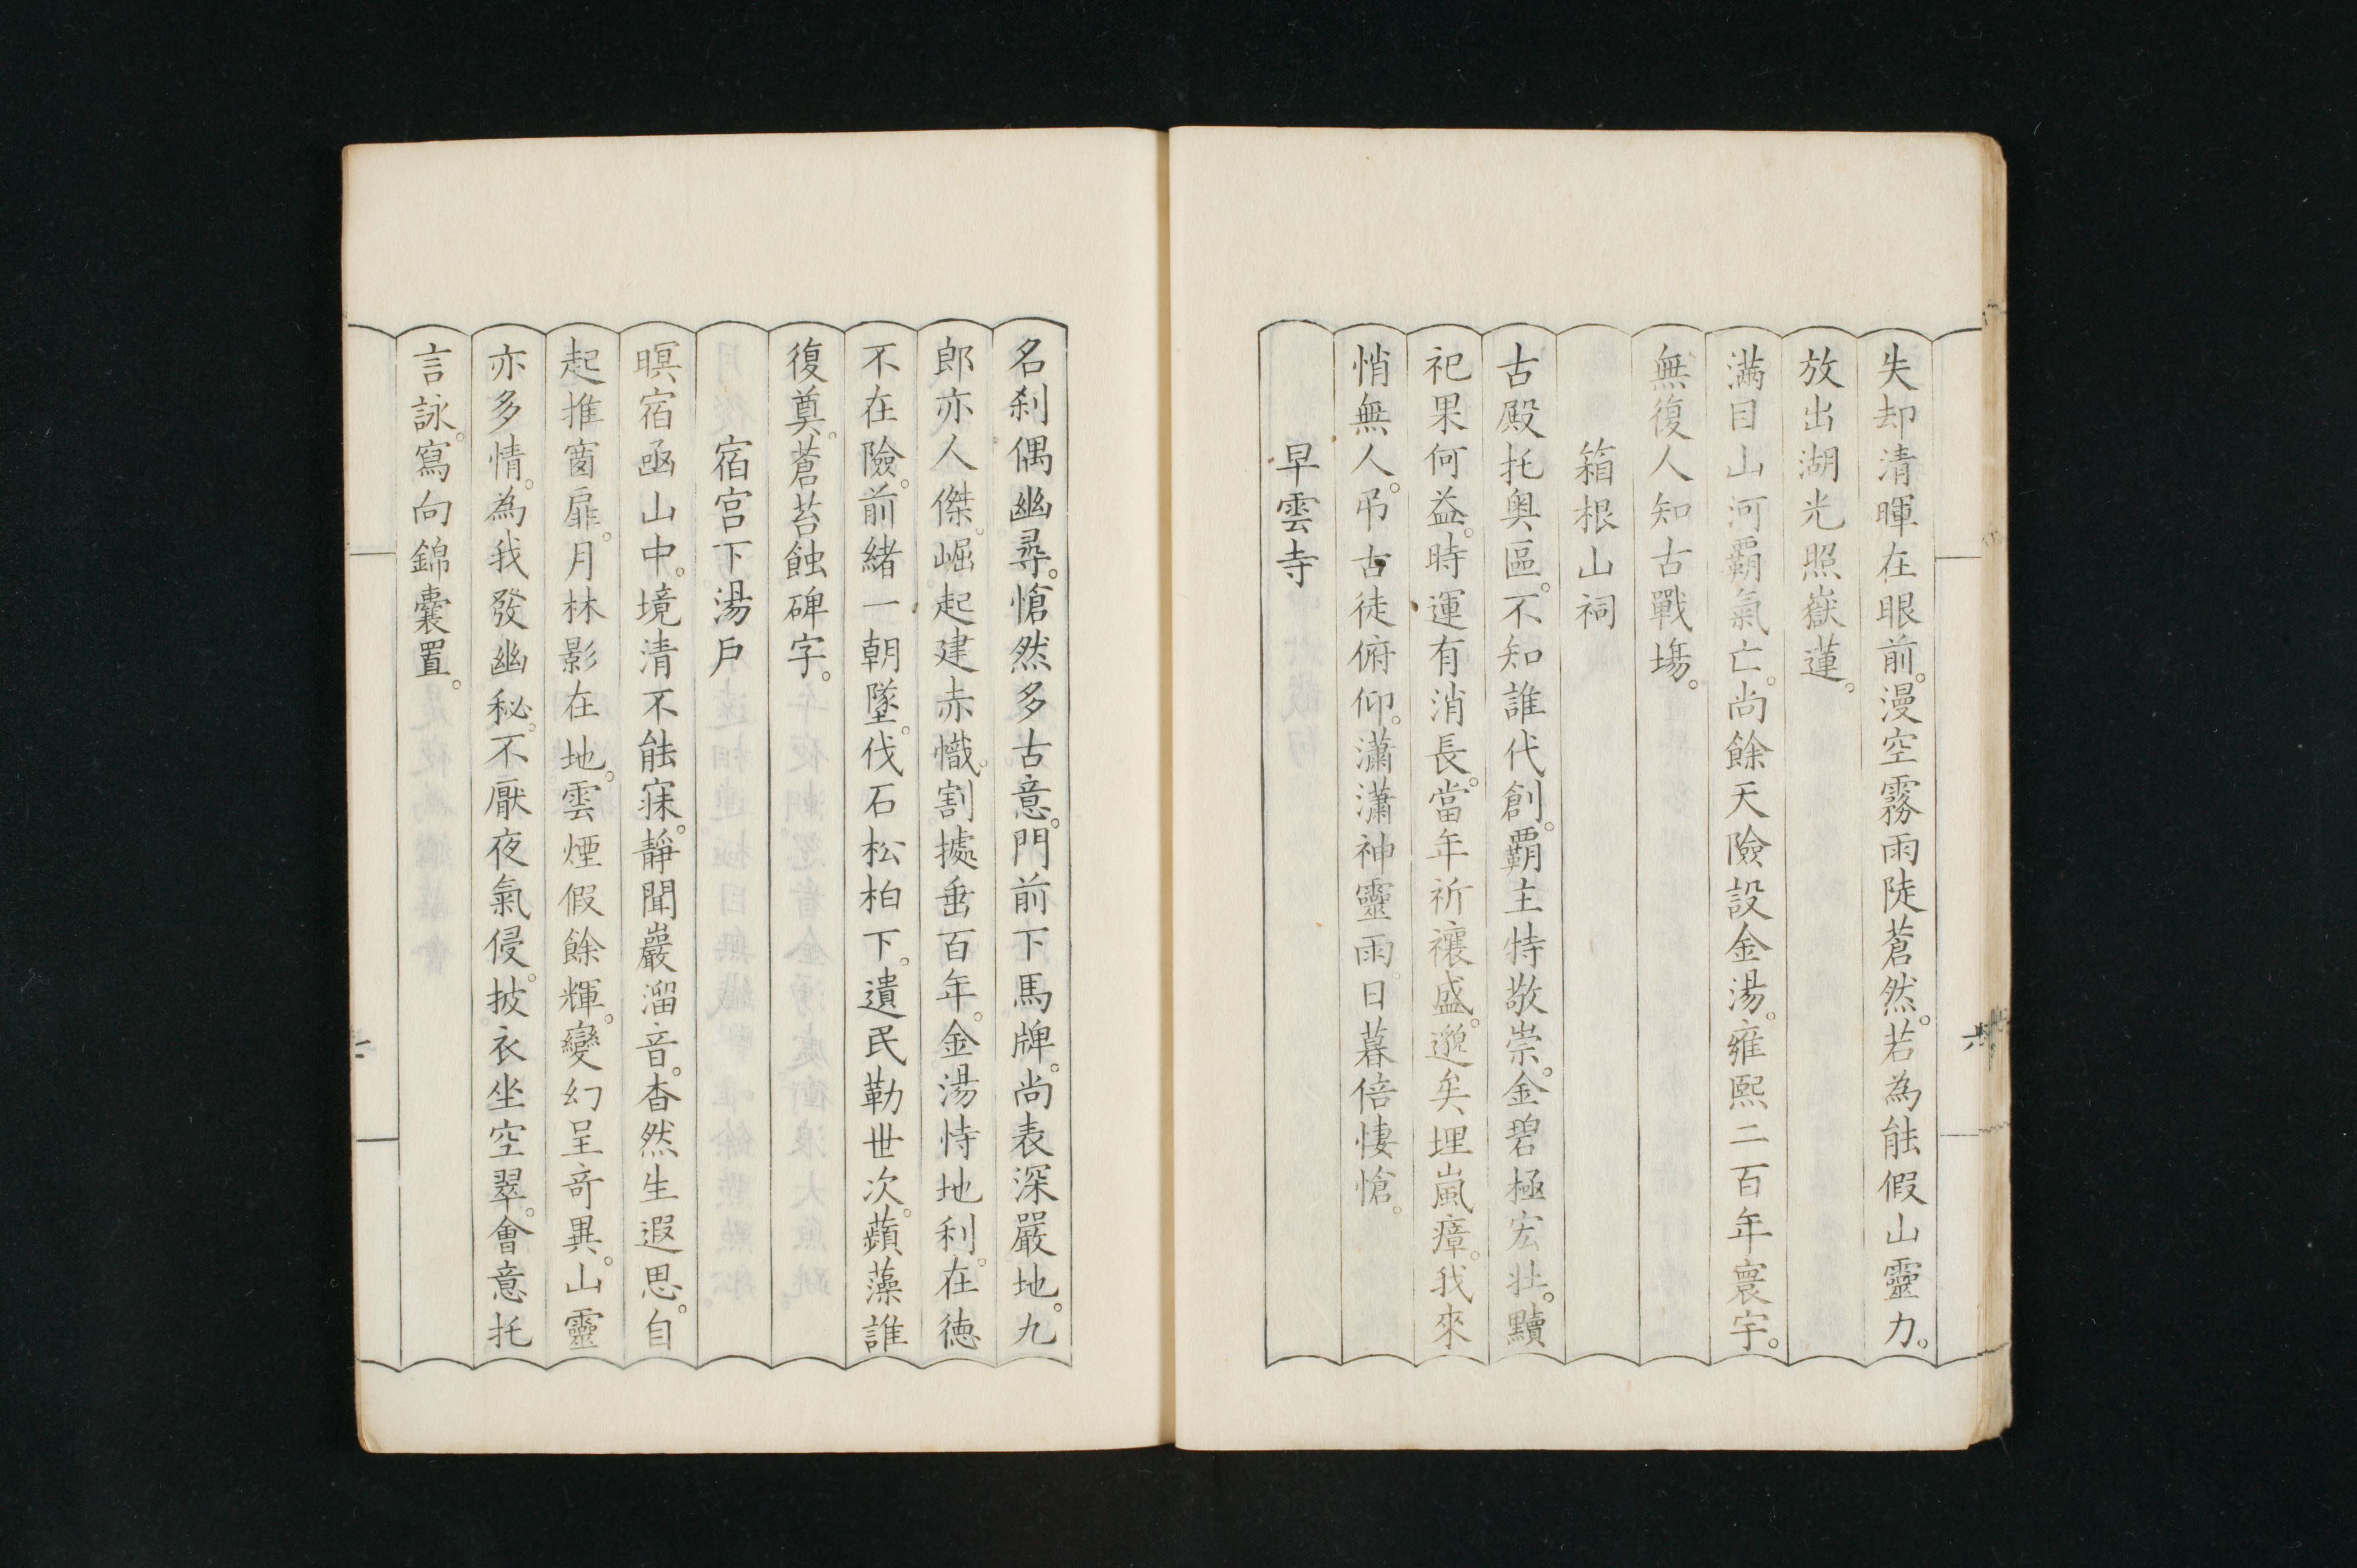 失却清暉在眼前。漫空霧雨陡蒼然。若為能假山靈力。
放出湖光照嶽蓮。
滿目山河覇氣亡。尚餘天險設金湯。雍熙二百年寰宇。
無復人知古戰場。
箱根山祠
古殿托奥區。不知誰代創。覇主特敬崇。金碧極宏壮。黷
祀果何益。時運有消長。當年祈禳盛。邈矣埋嵐瘴。我來
悄無人。弔古徒俯仰。瀟瀟神靈雨。日暮倍悽愴。
早雲寺
名刹偶幽尋。愴然多古意。門前下馬牌。尚表深嚴地。九
郎亦人傑。崛起建赤幟。割據垂百年。金湯恃地利。在徳
不在險。前緒一朝墜。伐石松柏下。遺民勒世次。蘋藻誰
復奠。蒼苔蝕碑字。
宿宮下湯戸
暝宿凾山中。境清不能寐。靜聞巖溜音。杳然生遐思。自
起推窗扉。月林影在地。雲煙假餘輝。變幻呈奇異。山靈
亦多情。為我發幽秘。不厭夜氣侵。披衣坐空翠。會意托
言詠。寫向錦囊置。